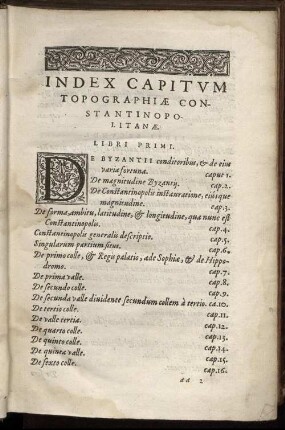 INDEX CAPITVM
TOPOGRAPHIÆ CON-
STANTINOPO-
LITANÆ.
LIBRI PRIMI.
DE BYZANTII conditoribus, & de eius
varia fortuna. capue 1.
De magnitudine Byzantij. cap.2.
De Constantinopolis instauratione, eiusque
magnitudine. cap.3.
De forma, ambitu, latitudine, & longitudine, qua nunc est
Constantinopolis. cap.4.
Constantinopolis generalis descriptio. cap.5.
Singularum partium situs. cap.6.
De primo colle, & Regis palatio, æde Sophiæ, & de Hippo-
dromo. cap.7.
De prima valle. cap.8.
De secundo colle. cap.9.
De secunda valle dividente secundum collem à tertio. ca.10.
De tertio colle. cap.11.
De valle tertia. cap.12.
De quarto colle. cap.13.
De quinto colle. cap.14.
De quinta valle. cap.15.
De sexto colle. cap.16.
aa 2